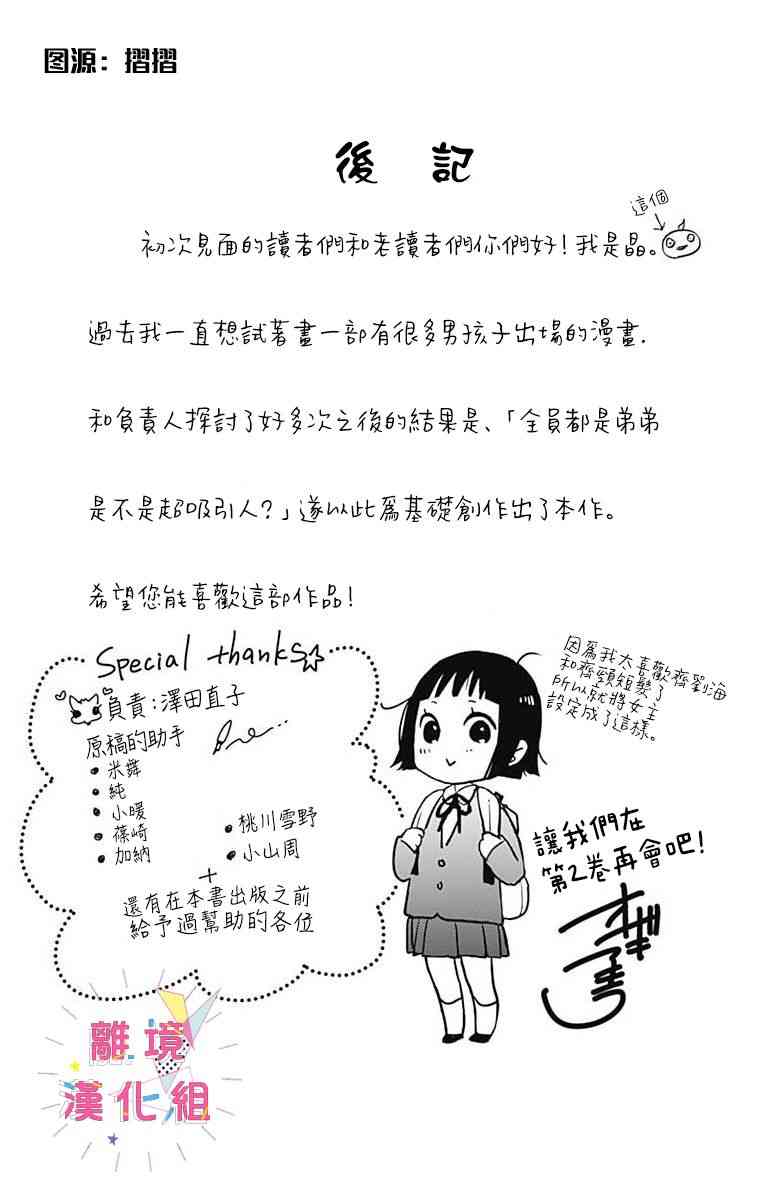 图源：摺摺
後記
這個
初次見面的讀者們和老讀者們你們好！我是晶。
過去我一直想試著畫一部有很多男孩子出場的漫畫.
和負責人探討了好多次之後的結果是、「全員都是弟弟
是不是超吸引人？」遂以此為基礎創作出了本作。
希望您能喜歡這部作品！
Special thanks
負責：澤田直子
原稿的助手
• 米舞
• 純
• 小暖
• 篠崎
• 加納
• 桃川雪野
• 小山周
+
還有在本書出版之前
給予過幫助的各位
因為我太喜歡齊劉海
和齊頸短髮了
所以就將女主
設定成了這樣。
讓我們在
第2卷再會吧！
離境
漢化組